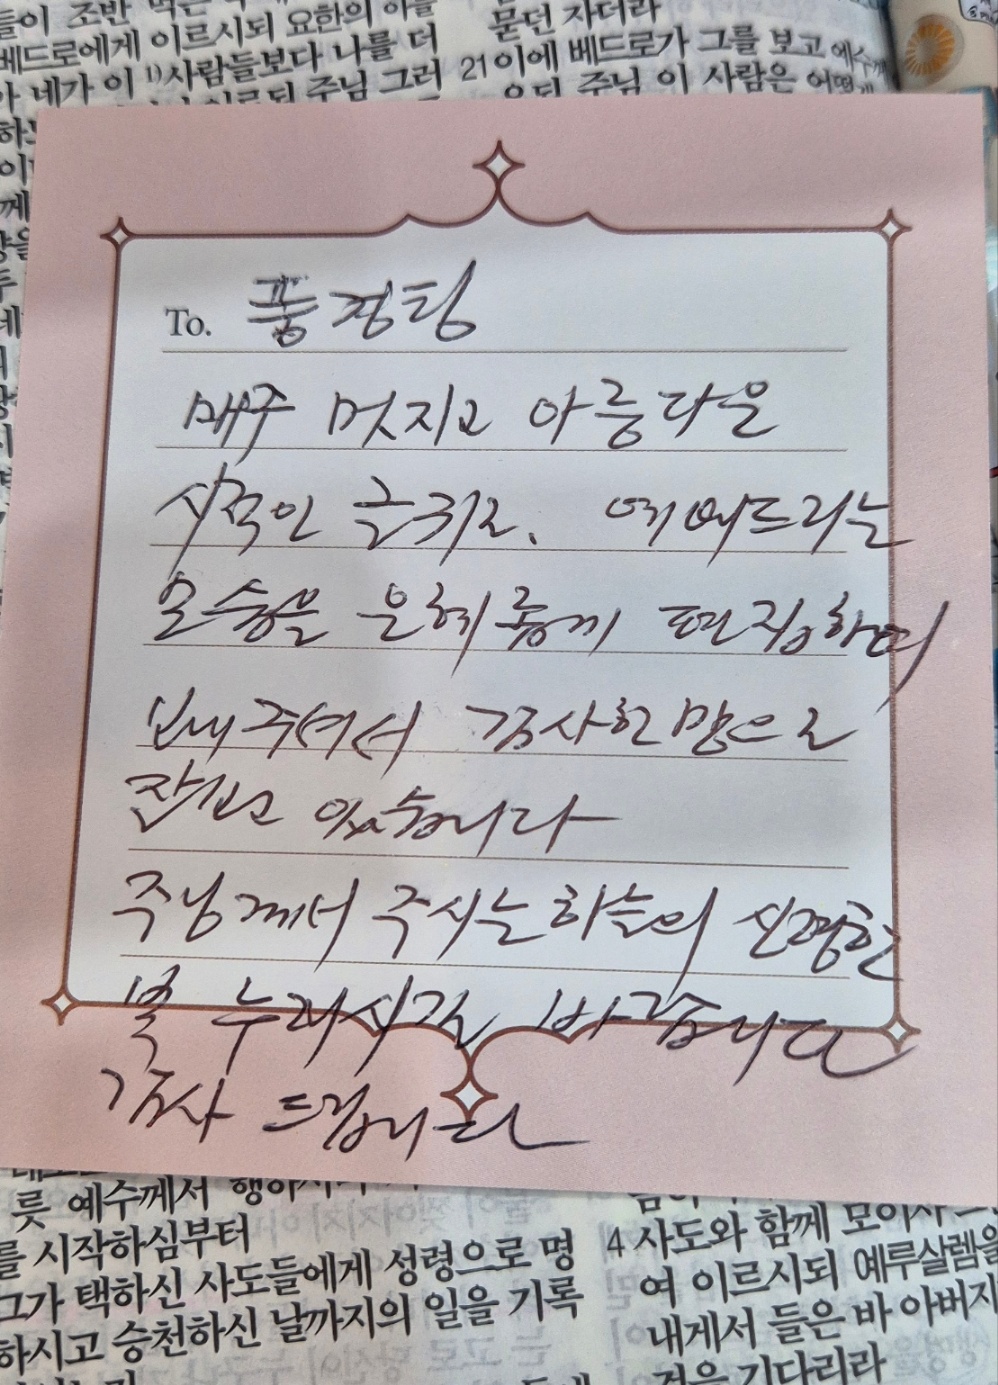 들이 조반
베드로에게 이르시되 요한의 아들
네가 이 1)사람들보다 나를 더
주님 그러
묻던 자더라
21 이에 베드로가 그를 보고 예수께
주님 이 사람은 어떻게
To. 풍경팀
매주 멋지고 아름다운
시적인 글귀로, 예배드리는
모습을 은혜롭게 편집하여
보내주셔서 감사한 맘으로
잘보고 있습니다
주님께서 주시는 하늘의 신령한
복 누리시길 바랍니다
감사 드립니다
릇 예수께서
를 시작하심부터
그가 택하신 사도들에게 성령으로 명
하시고 승천하신 날까지의 일을 기록
4 사도와 함께 모이사
여 이르시되 예루살렘을
내게서 들은 바 아버지
것을 기다리라